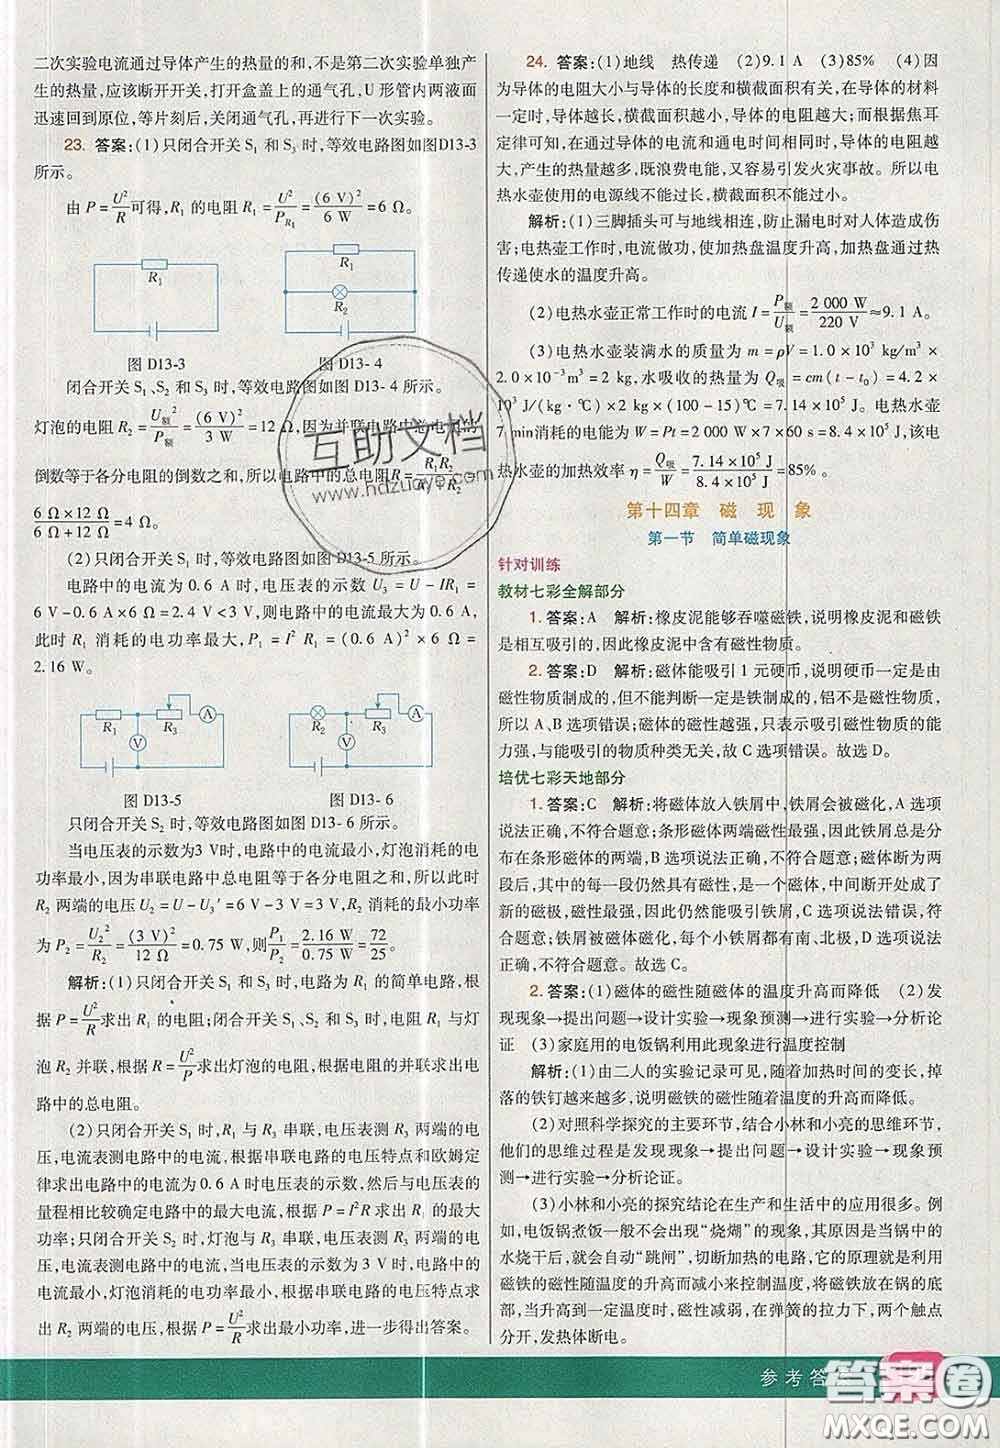 二次实验电流通过导体产生的热量的和,不是第二次实验单独产
生的热量,应该断开开关,打开盒盖上的通气孔,U 形管内两液面
迅速回到原位,等片刻后,关闭通气孔,再进行下一次实验。
23. 答案:(1)只闭合开关 S₁ 和 S₃ 时,等效电路图如图D13-3
所示。
由 P=U²/R可得,R₁ 的电阻 R₁=U²/P_R₁=(6 V)²/6 W=6 Ω。
R₁
R₁
R₂
图 D13-3
图 D13- 4
闭合开关 S₁、S₂ 和 S₃ 时,等效电路图如图 D13- 4 所示。
灯泡的电阻 R₂=U额²/P额=(6 V)²/3 W=12 Ω,因为并联电路中总电阻的
倒数等于各分电阻的倒数之和,所以电路中的总电阻R=R₁R₂/R₁+R₂=
6 Ω×12 Ω/6 Ω+12 Ω=4 Ω。
(2)只闭合开关 S₁ 时,等效电路图如图 D13-5 所示。
电路中的电流为 0.6 A 时,电压表的示数 U₃=U-U₁=U-IR₁=
6 V-0.6 A×6 Ω=2.4 V<3 V,则电路中的电流最大为 0.6 A,
此时 R₁ 消耗的电功率最大,P₁=I² R₁=(0.6 A)²×6 Ω=
2.16 W。
R₁ R₃ A
V
R₂ R₃ A
V
图 D13-5
图 D13- 6
只闭合开关 S₂ 时,等效电路图如图 D13- 6 所示。
当电压表的示数为3 V时,电路中的电流最小,灯泡消耗的电
功率最小,因为串联电路中总电阻等于各分电阻之和,所以此时
R₂ 两端的电压 U₂=U-U₃′=6 V-3 V=3 V,R₂ 消耗的最小功率
为 P₂=U₂²/R₂=(3 V)²/12 Ω=0.75 W,则P₁/P₂=2.16 W/0.75 W=72/25。
解析:(1)只闭合开关 S₁ 和 S₃ 时,电路为 R₁ 的简单电路,根
据 P=U²/R求出 R₁ 的电阻;闭合开关 S₁、S₂ 和 S₃ 时,R₁ 与灯
泡 R₂ 并联,根据 P=U²/R求出灯泡的电阻,根据电阻的并联求出电
路中的总电阻。
(2)只闭合开关 S₁ 时,R₁ 与 R₃ 串联,电压表测 R₃ 两端的电
压,电流表测电路中的电流,根据串联电路的电压特点和欧姆定
律求出电路中的电流为 0.6 A时电压表的示数,然后与电压表的
量程相比较确定电路中的最大电流,根据 P=I²R 求出 R₁ 的最大
功率;只闭合开关 S₂ 时,灯泡与 R₃ 串联,电压表测 R₃ 两端的电压,
电流表测电路中的电流,当电压表的示数为 3 V 时,电路中的电
流最小,灯泡消耗的电功率最小,根据串联电路的电压特点求
出 R₂ 两端的电压,根据 P=U²/R求出最小功率,进一步得出答案。
24. 答案:(1)地线 热传递 (2)9.1 A (3)85% (4)因
为导体的电阻大小与导体的长度和横截面积有关,在导体的材料
一定时,导体越长,横截面积越小,导体的电阻越大;而根据焦耳
定律可知,在导体的电流和通电时间相同时,导体的电阻越
大,产生的热量越多,既浪费电能,又容易引发火灾事故。所以电
热水壶使用的电源线不能过长,横截面积不能过小。
解析:(1)三脚插头可与地线相连,防止漏电时对人体造成伤
害;电热壶工作时,电流做功,使加热盘温度升高,加热盘通过热
传递使水的温度升高。
(2)电热水壶正常工作时的电流 I=P额/U额=2 000 W/220 V≈9.1 A。
(3)电热水壶装满水的质量为 m=ρV=1.0×10³ kg/m³×
2.0×10⁻³m³=2 kg,水吸收的热量为 Q吸=cm(t-t₀)=4.2×
10³ J/(kg·℃)×2 kg×(100-15)℃=7.14×10⁵ J。电热水壶
7 min消耗的电能为 W=Pt=2 000 W×7×60 s=8.4×10⁵ J,该电
热水壶的加热效率 η=Q吸/W=7.14×10⁵ J/8.4×10⁵ J=85%。
第十四章 磁 现 象
第一节 简单磁现象
针对训练
教材七彩全解部分
1. 答案:A 解析:橡皮泥能够吞噬磁铁,说明橡皮泥和磁铁
是相互吸引的,因此橡皮泥中含有磁性物质。
2. 答案:D 解析:磁体能吸引 1 元硬币,说明硬币一定是由
磁性物质制成的,但不能判断一定是铁制成的,铝不是磁性物质,
所以 A、B 选项错误;磁体的磁性越强,只表示吸引磁性物质的能
力强,与能吸引的物质种类无关,故 C 选项错误。故选 D。
培优七彩天地部分
1. 答案:C 解析:将磁体放入铁屑中,铁屑会被磁化,A 选项
说法正确,不符合题意;条形磁体两端磁性最强,因此铁屑总是分
布在条形磁体的两端,B 选项说法正确,不符合题意;磁体断为两
半,其中的每一段仍然具有磁性,是一个磁体,中间断开处成了
新的磁极,磁性最强,因此仍然能吸引铁屑,C 选项说法错误,符
合题意;铁屑被磁体磁化,每一小铁屑都有南、北极,D 选项说法
正确,不符合题意。故选 C。
2. 答案:(1)磁体的磁性随磁体的温度升高而降低 (2)发
现现象→提出问题→设计实验→现象预测→进行实验→分析论
证 (3)家庭用的电饭锅利用此现象进行温度控制
解析:(1)由二人的实验记录可见,随着加热时间的变长,掉
落的铁钉越来越多,说明磁铁的磁性随着温度的升高而降低。
(2)对照科学探究的主要环节,结合小林和小亮的思维环节,
他们的思维过程是发现现象→提出问题→设计实验→现象预
测→进行实验→分析论证。
(3)小林和小亮的探究结论在生产和生活中的应用很多。例
如,电饭锅煮饭一般不会出现“烧煳”的现象,其原因是当锅中的
水烧干后,就会自动“跳闸”,切断加热的电路,它的原理就是利用
磁铁的磁性随温度的升高而减小来控制温度,将磁铁放在锅的底
部,当升高到一定温度时,磁性减弱,在弹簧的拉力下,两个触点
分开,发热体断电。
互助文档
www.hdzuoye.com
参考答案
答案圈
MXQE.COM